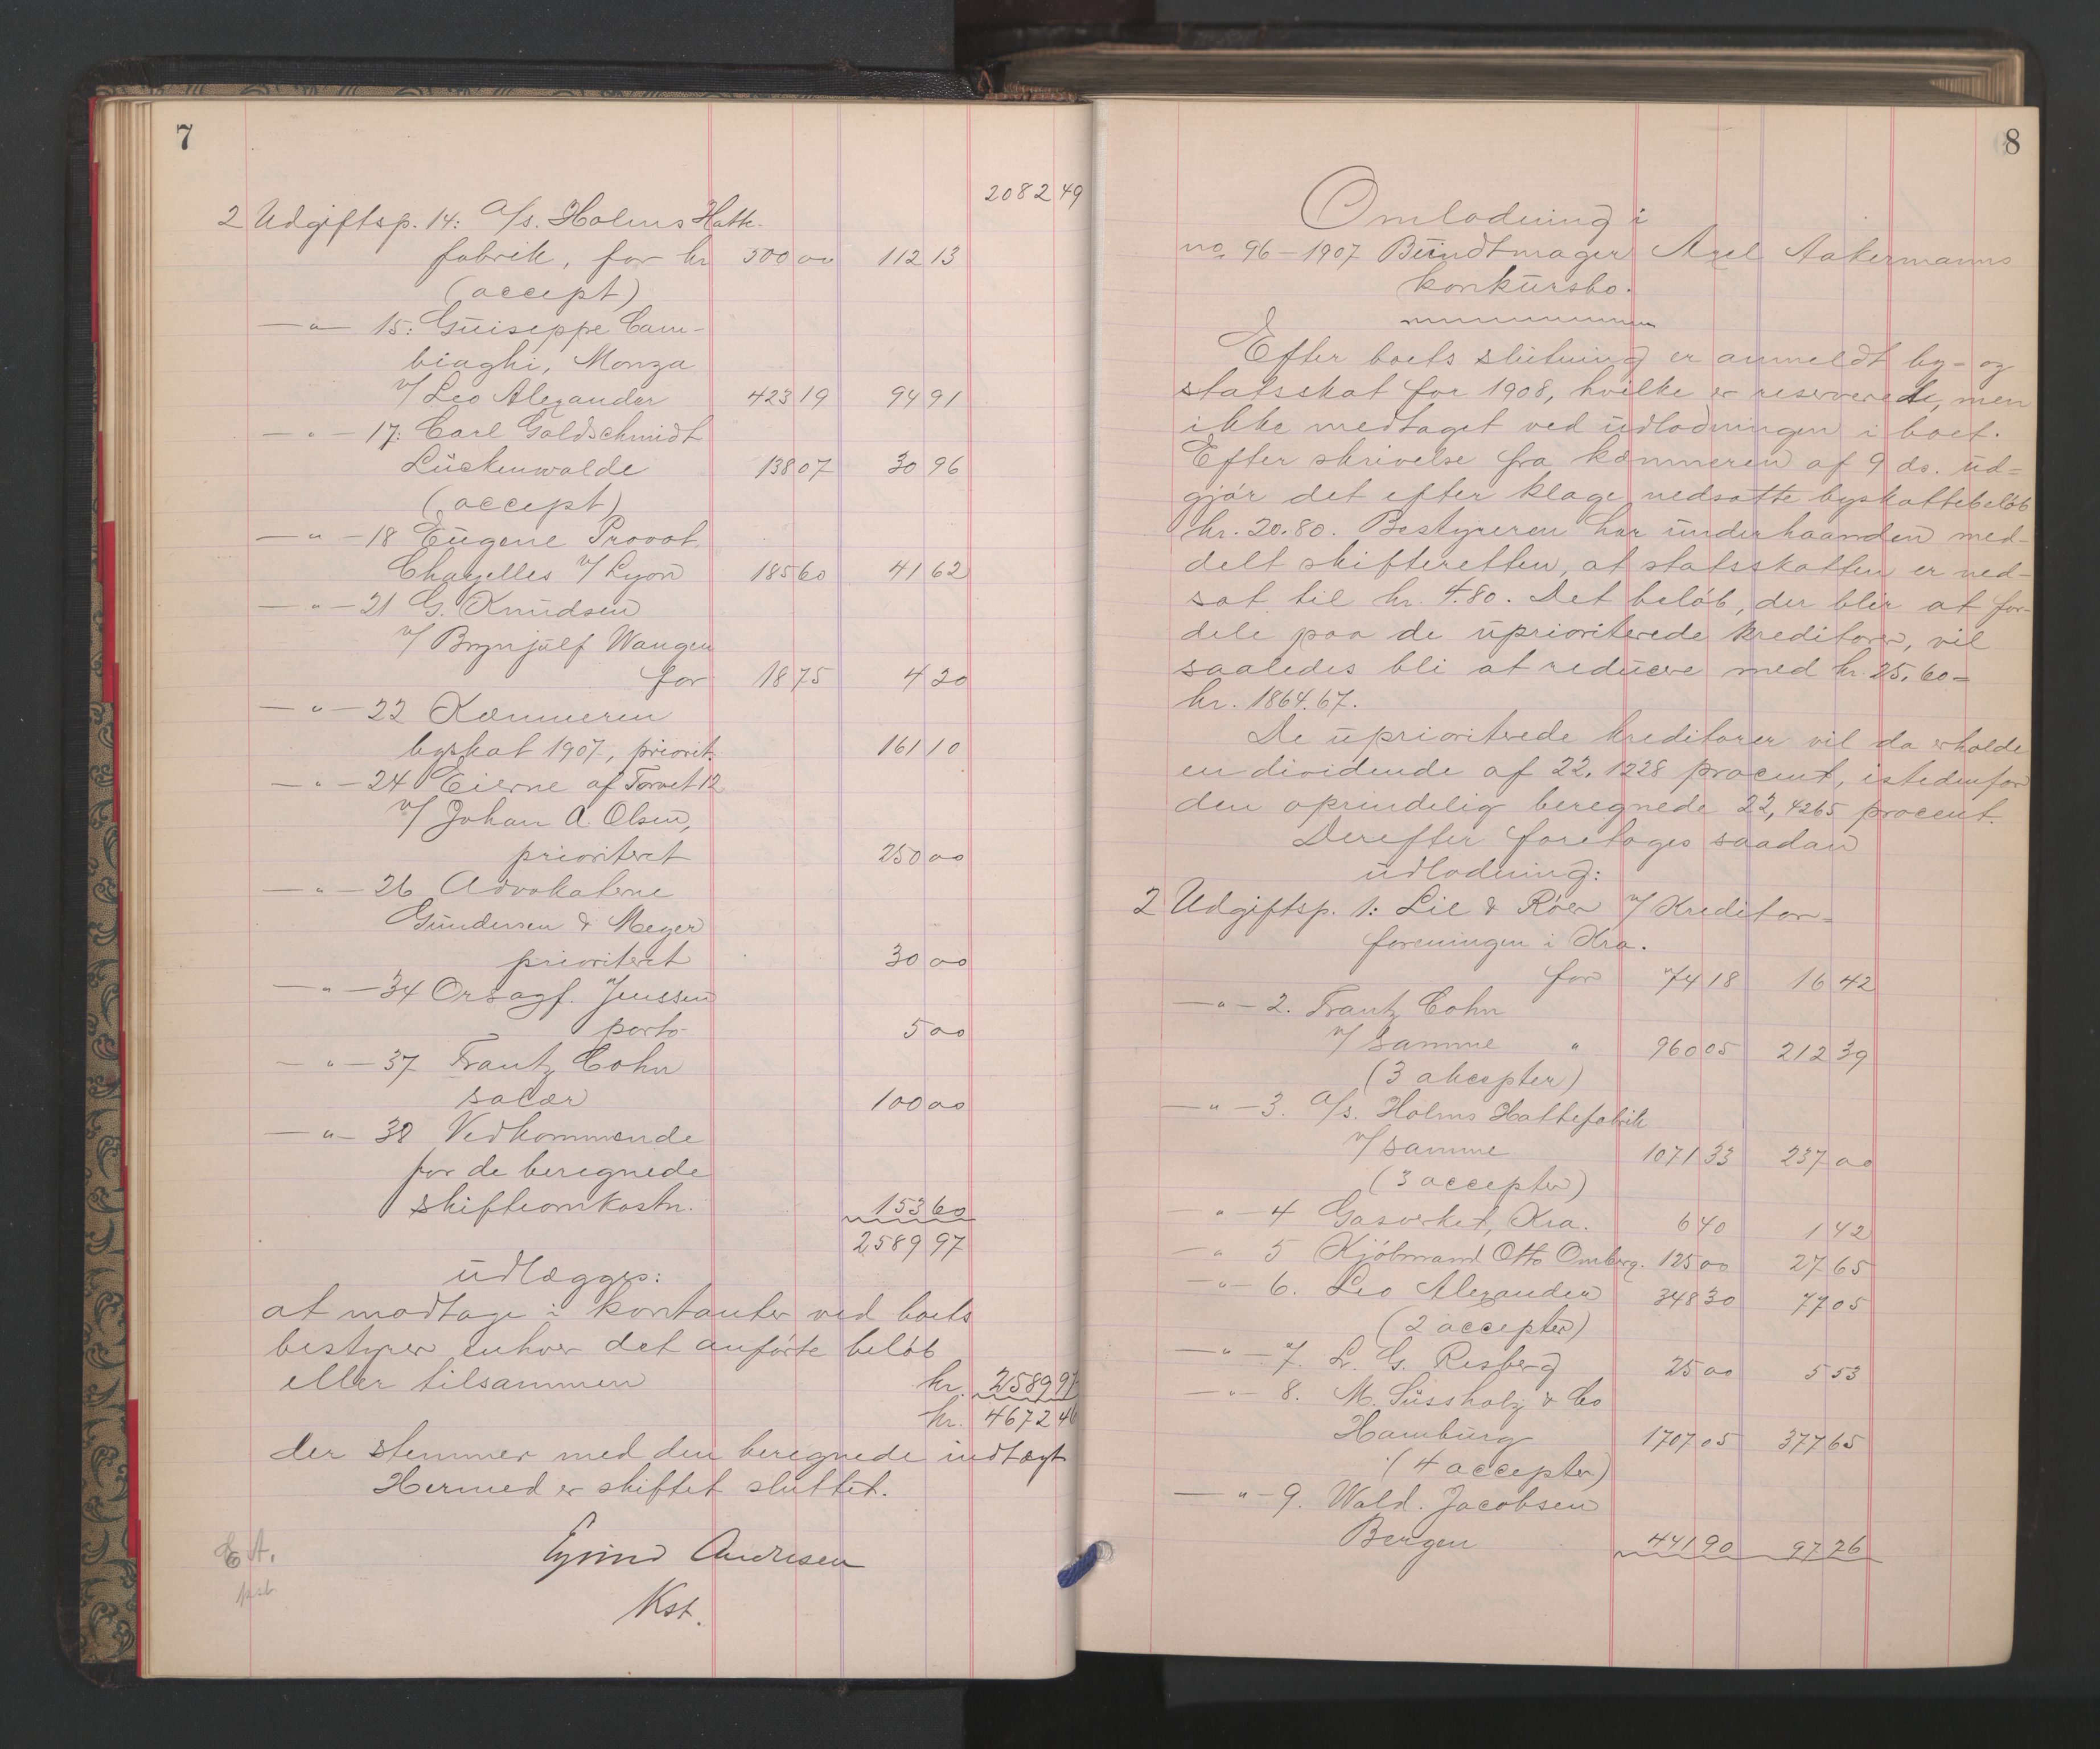 7
2082 49
2 Udgiftsp. 14: A/s. Holms Hatte-
fabrik, for kr 500 00 112 13
(accept)
—"— 15: Guiseppe Cam-
biaghi, Monza
v/ Leo Alexander 423 19 94 91
—"— 17: Carl Goldschmidt
Lückenwalde 138 07 30 96
(accept)
—"— 18 Eugene Provot.
Chazelles v/ Lyon 185 60 41 62
—"— 21 G. Knudsen
v/ Brynjulf Wangen
for 18 75 4 20
—"— 22 Kæmneren
byskat 1907, priorit. 161 10
—"— 24 Eierne af Torvet 12
v/ Johan A. Olsen,
prioriteret 250 00
—"— 26 Advokaterne
Gundersen & Meyer
prioriteret 30 00
—"— 34 Orsagf. Jenssen
porto 5 00
—"— 37 Frantz Cohn
salær 100 00
—"— 38 Vedkommende
for de beregnede
skifteomkostn. 153 60
2589 97
udlægges:
at modtage i kontanter ved boets
bestyrer enhver det anførte beløb
eller tilsammen kr. 2589 97
kr. 4672 46
der stemmer med den beregnede indtægt
Hermed er skiftet sluttet.
E. A.
Eyvind Andresen
Kst.
8
Omlodning i
no. 96 – 1907 Bundtmager Axel Aakermanns
konkursbo.
Efter boets slutning er anmeldt by- og
statsskat for 1908, hvilke er reserverede, men
ikke medtaget ved udlodningen i boet.
Efter skrivelse fra kæmneren af 9 ds. ud-
gjør det efter klage nedsatte byskattebeløb
kr. 20.80. Bestyreren har underhaanden med-
delt skifteretten, at statsskatten er ned-
sat til kr. 4.80. Det beløb, der blir at for-
dele paa de uprioriterede kreditorer, vil
saaledes bli at reducere med kr. 25.60 =
kr. 1864.67.
De uprioriterede kreditorer vil da erholde
en dividende af 22,1228 procent, istedenfor
den oprindelig beregnede 22,4265 procent.
Derefter foretages saadan
udlodning:
2 Udgiftsp. 1: Lie & Röer v/ Kreditor-
foreningen i Kra.
for 74 18 16 42
—"— 2. Frantz Cohn
v/ samme " 960 05 212 39
(3 akcepter)
—"— 3. A/s. Holms Hattefabrik
v/ samme 1071 33 237 00
(3 accepter)
—"— 4 Gasverket, Kra. 6 40 1 42
—" 5 Kjøbmand Otto Omberg. 125 00 27 65
—"— 6. Leo Alexander 348 30 77 05
(2 accepter)
—"— 7. L. G. Risberg 25 00 5 53
—"— 8. M. Süssholz & Co
Hamburg 1707 05 377 65
(4 accepter)
—"— 9. Wald. Jacobsen
Bergen 441 90 97 76